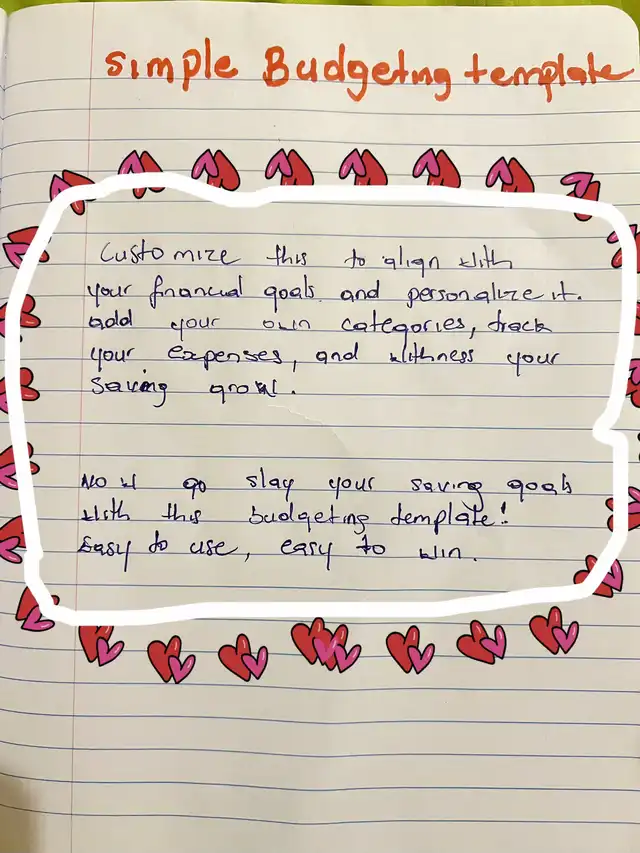 simple Budgeting template
Customize this to align with
your financial goals and personalize it.
add your own categories, track
your expenses, and withness your
saving grow.
Now go slay your saving goals
with this budgeting template!
Easy to use, easy to win.